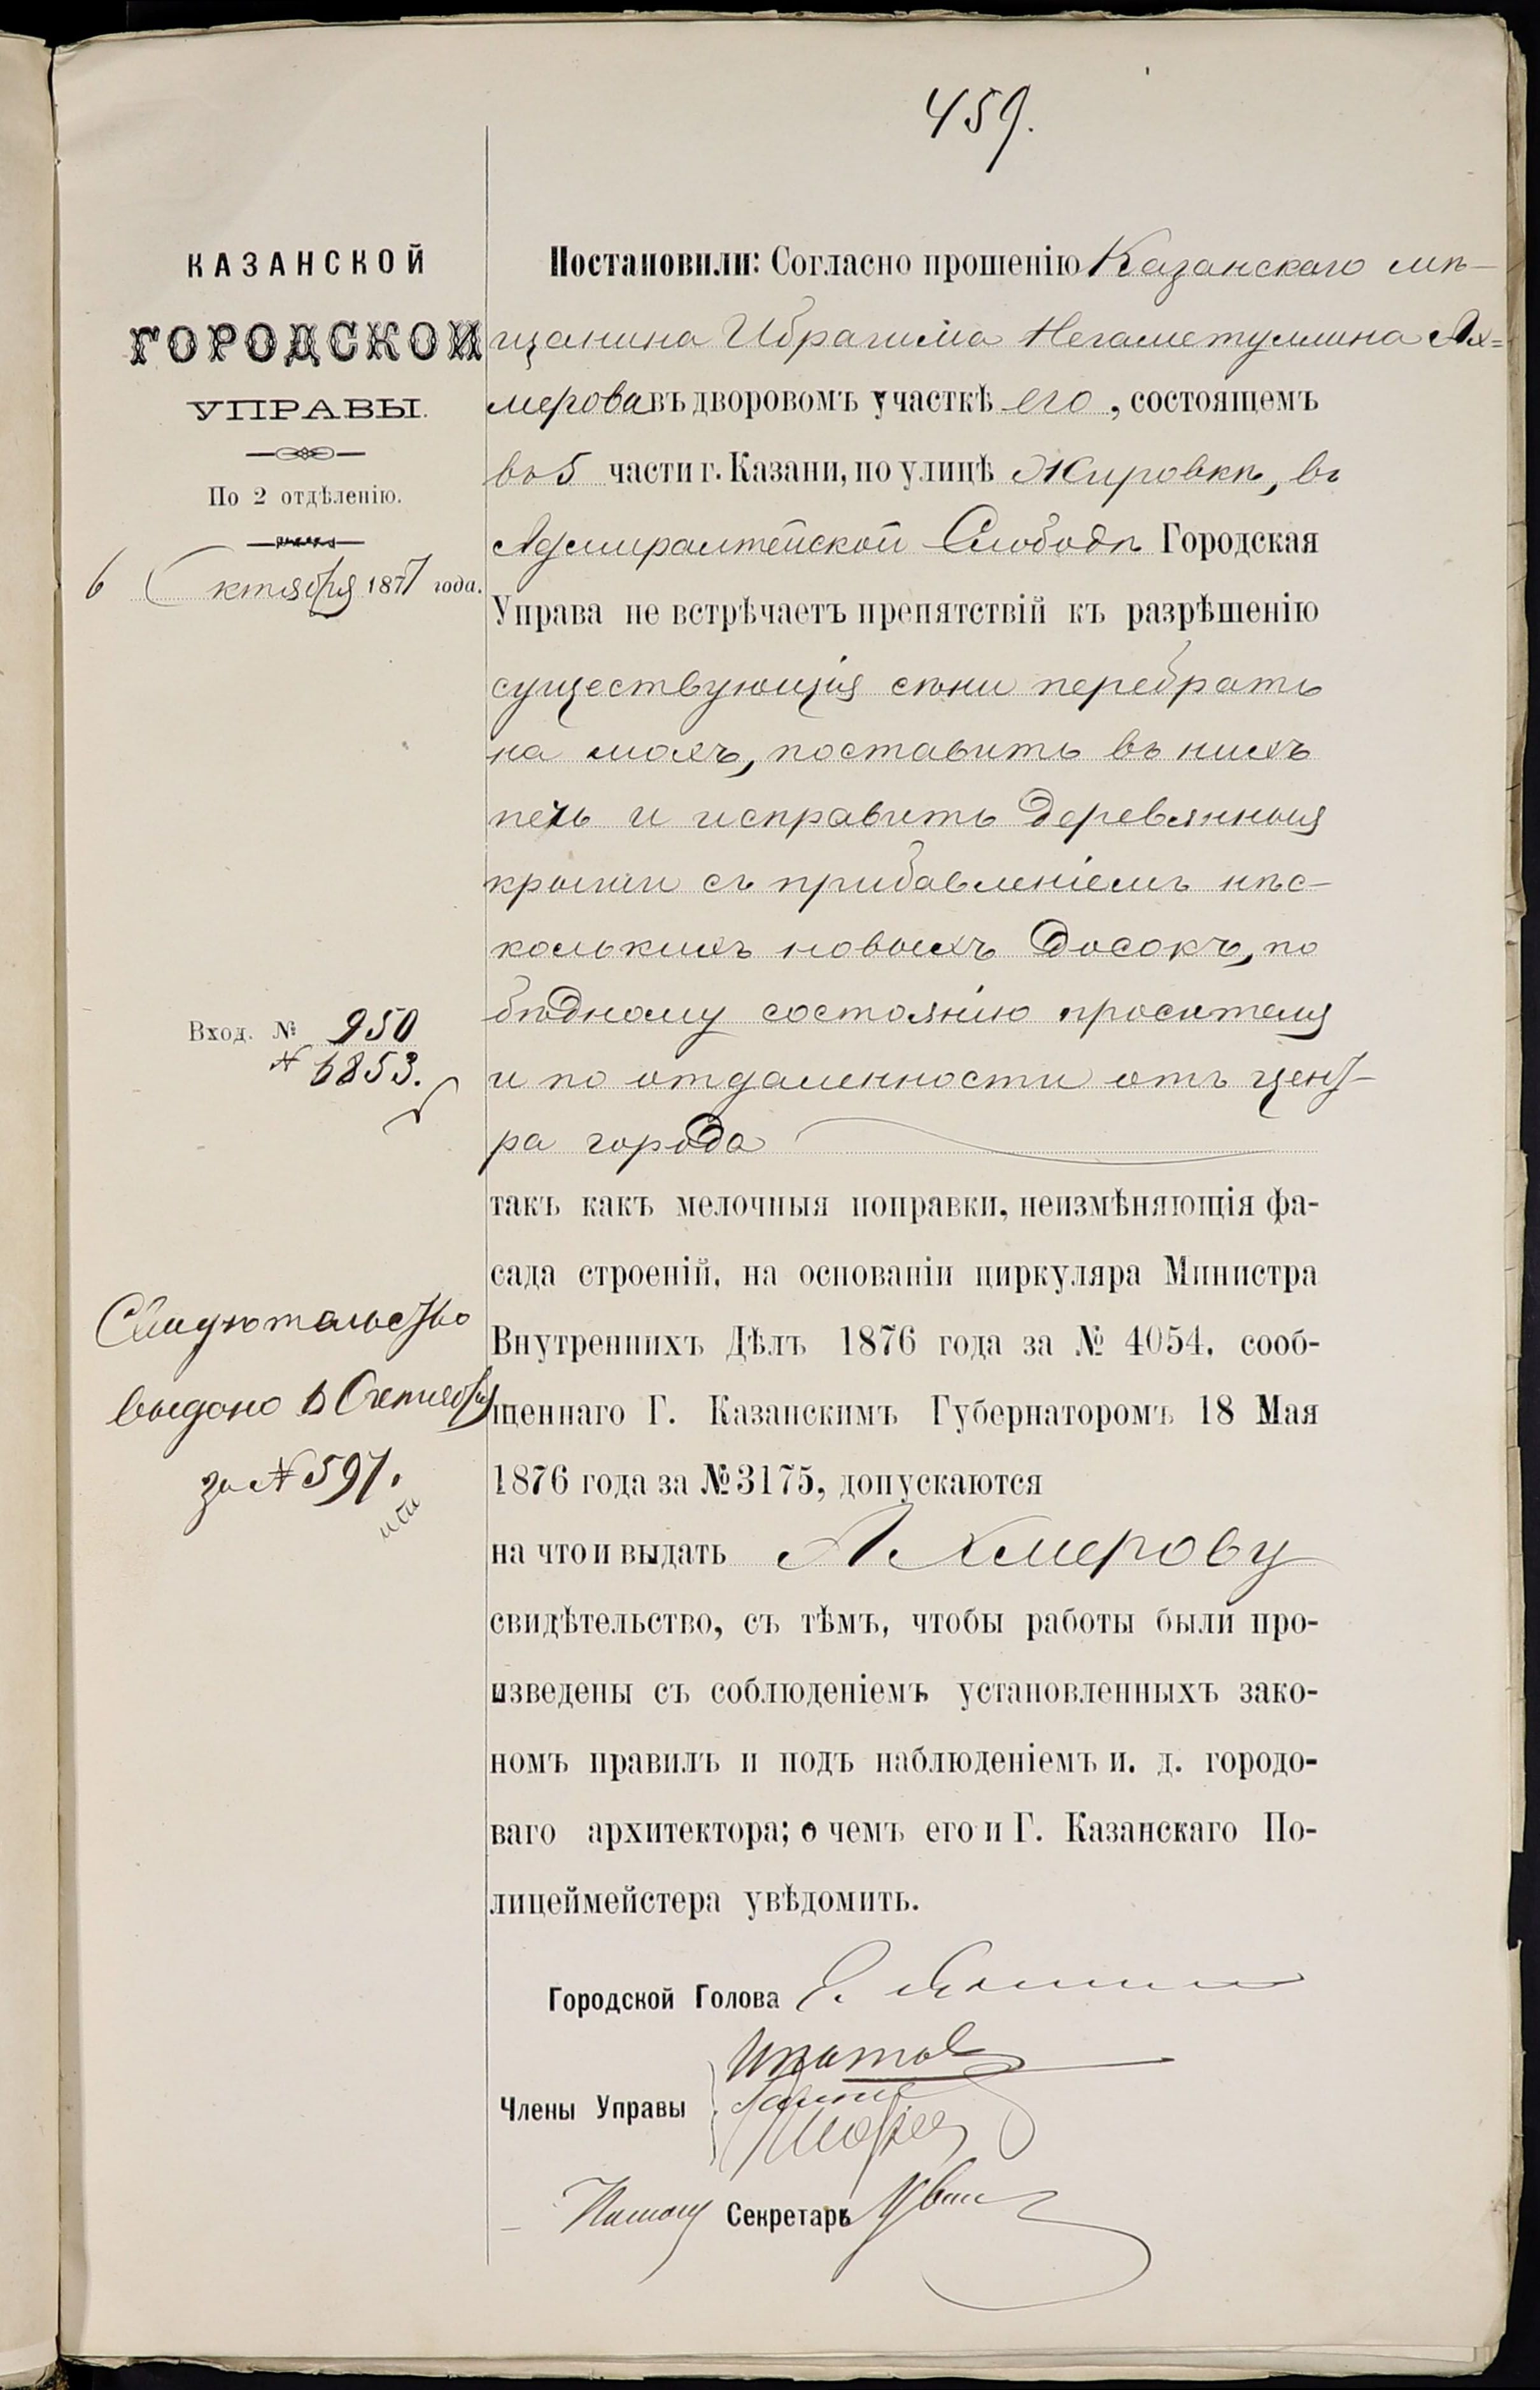 459.
КАЗАНСКОЙ
ГОРОДСКОЙ
УПРАВЫ.
По 2 отдѣленію.
6 Октября 1877 года.
Вход. № 950
№ 6853.
Свидѣтельство
выдано 6 Октября
за № 597.
Постановили: Согласно прошенію Казанскаго мѣ-
щанина Ибрагима Негаметуллина Ах=
мерова въ дворовомъ участкѣ его, состоящемъ
въ 5 части г. Казани, по улицѣ Жировкѣ, въ
Адмиралтейской Слободѣ Городская
Управа не встрѣчаетъ препятствій къ разрѣшенію
существующія сѣни перебрать
на мохъ, поставить въ нихъ
печь и исправить деревянныя
крыши съ прибавленіемъ нѣс-
колькихъ новыхъ досокъ, по
бѣдному состоянію просителя
и по отдаленности отъ цент-
ра города
такъ какъ мелочныя поправки, неизмѣняющія фа-
сада строеній, на основаніи циркуляра Министра
Внутреннихъ Дѣлъ 1876 года за № 4054, сооб-
щеннаго Г. Казанскимъ Губернаторомъ 18 Мая
1876 года за № 3175, допускаются
на что и выдать Ахмерову
свидѣтельство, съ тѣмъ, чтобы работы были про-
изведены съ соблюденіемъ установленныхъ зако-
номъ правилъ и подъ наблюденіемъ и. д. городо-
ваго архитектора; о чемъ его и Г. Казанскаго По-
лицеймейстера увѣдомить.
Городской Голова
Члены Управы
Секретарь